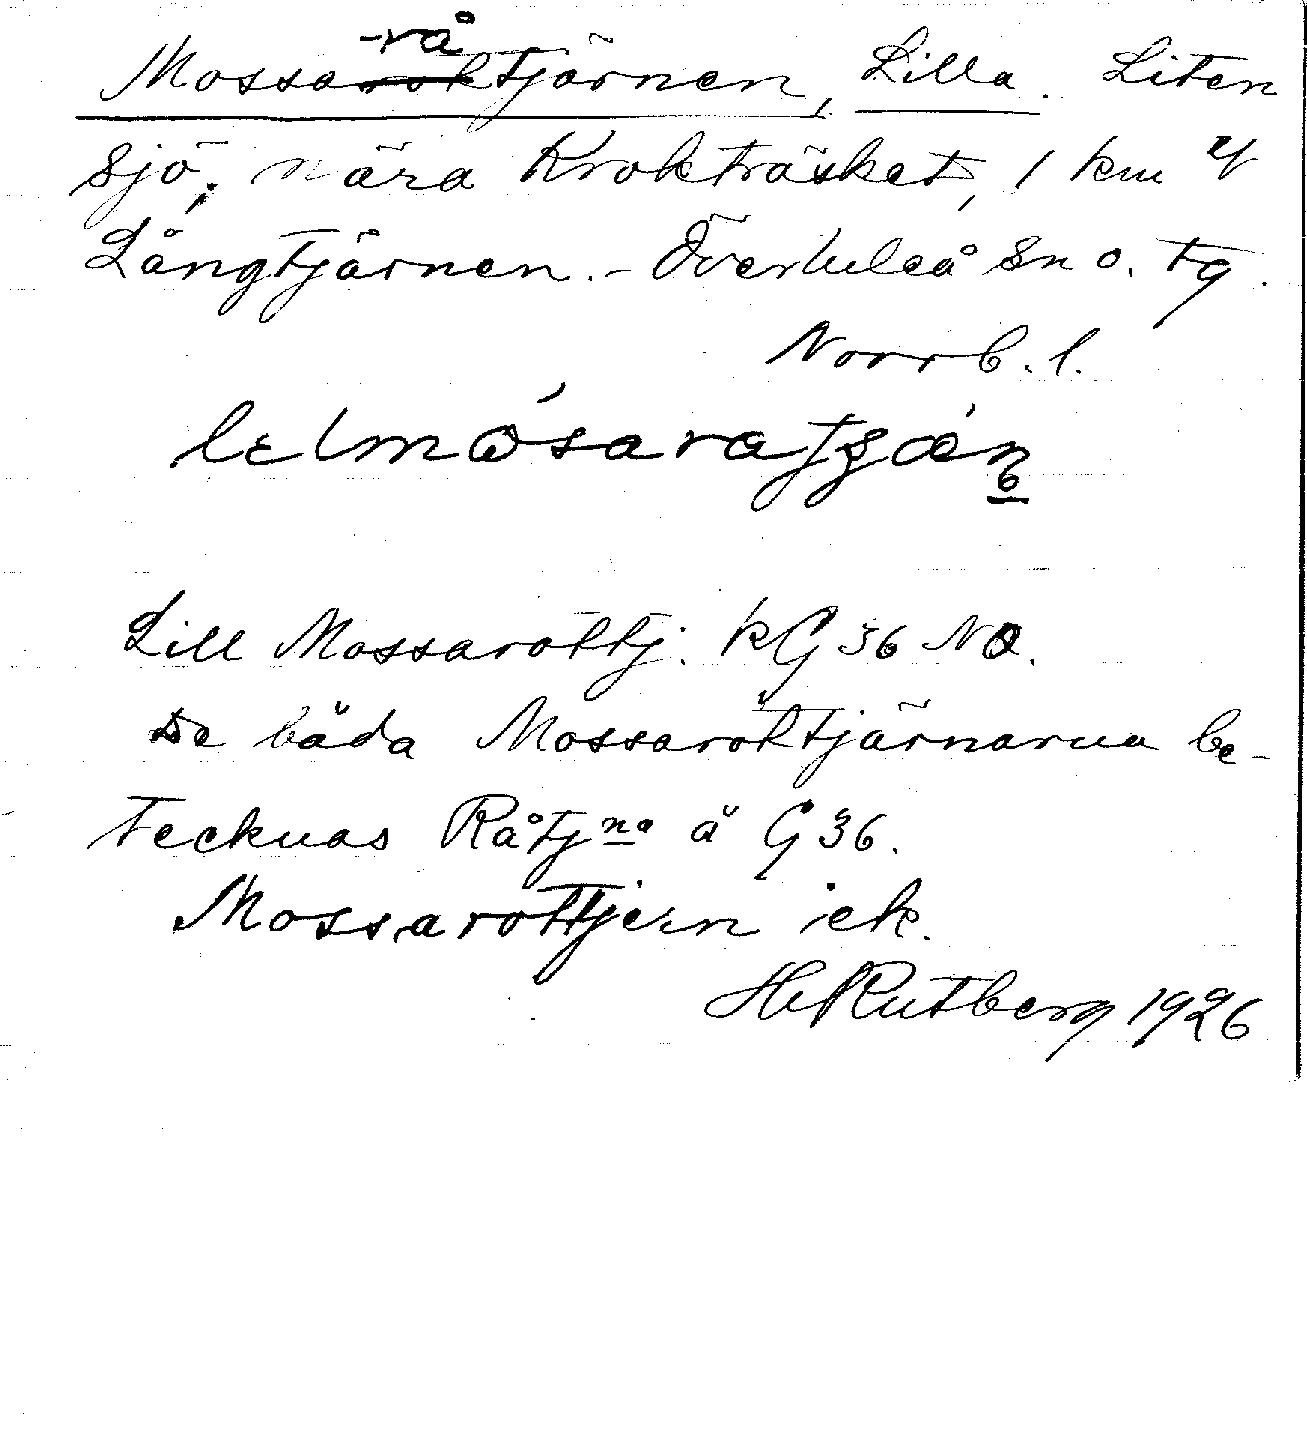 -rå
Mossaroktjärnen, Lilla. Liten
sjö; nära Krokträsket, 1 km V
Långtjärnen. - Överluleå sn o. tg.
Norrb. l.
Lill Mossarottj. kG 36 NO.
De båda Mossaroktjärnarna be-
tecknas Råtjna å G 36.
Mossarottjern ek.
H Rutberg 1926